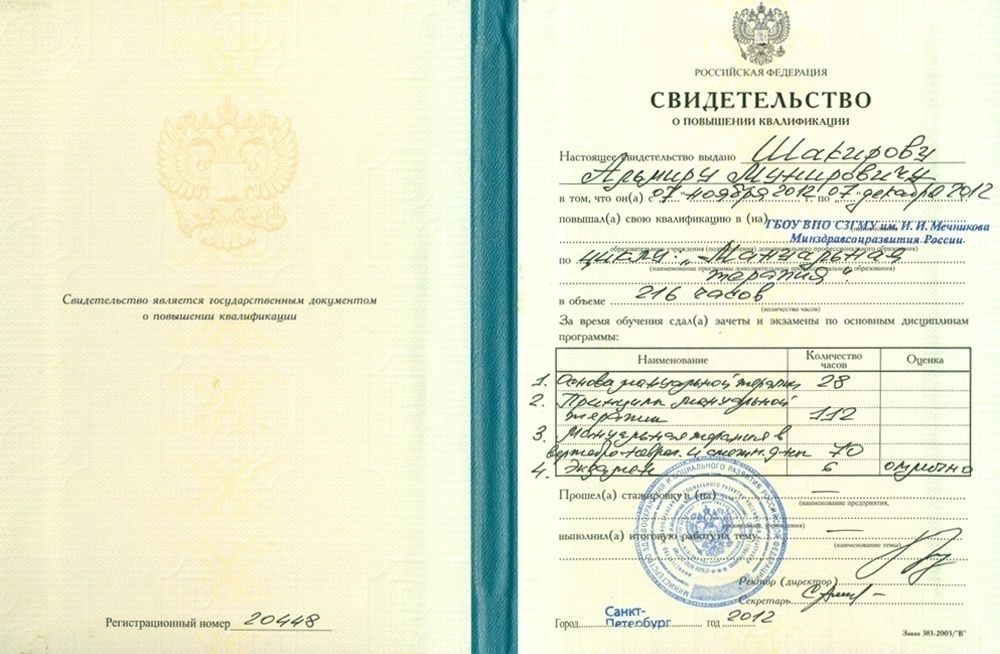 Свидетельство является государственным документом
о повышении квалификации
Регистрационный номер 20448
РОССИЙСКАЯ ФЕДЕРАЦИЯ
СВИДЕТЕЛЬСТВО
О ПОВЫШЕНИИ КВАЛИФИКАЦИИ
Настоящее свидетельство выдано Шакирову
Альмиру Мунировичу
в том, что он(а) с „07“ ноября 2012 г. по „07“ декабря 2012
повышал(а) свою квалификацию в (на) ГБОУ ВПО СЗГМУ им. И. И. Мечникова
Минздравсоцразвития России
образовательного учреждения (подразделения) дополнительного профессионального образования)
по цикла: „Мануальная
(наименование программы дополнительного профессионального образования)
терапия".
в объеме 216 часов
(количество часов)
За время обучения сдал(а) зачеты и экзамены по основным дисциплинам
программы:
Наименование Количество часов Оценка
1. Основа мануальной терапии 28
2. Принципы мануальной
терапии 112
3. Мануальная терапия в
70
4. Экзамен 6 отлично
Прошел(а) стажировку в (на) —
(наименование предприятия,
организации, учреждения)
выполнил(а) итоговую работу на тему —
(наименование темы)
Ректор (директор)
Секретарь
Город Санкт-Петербург год 2012
Заказ 383-2003/"В"